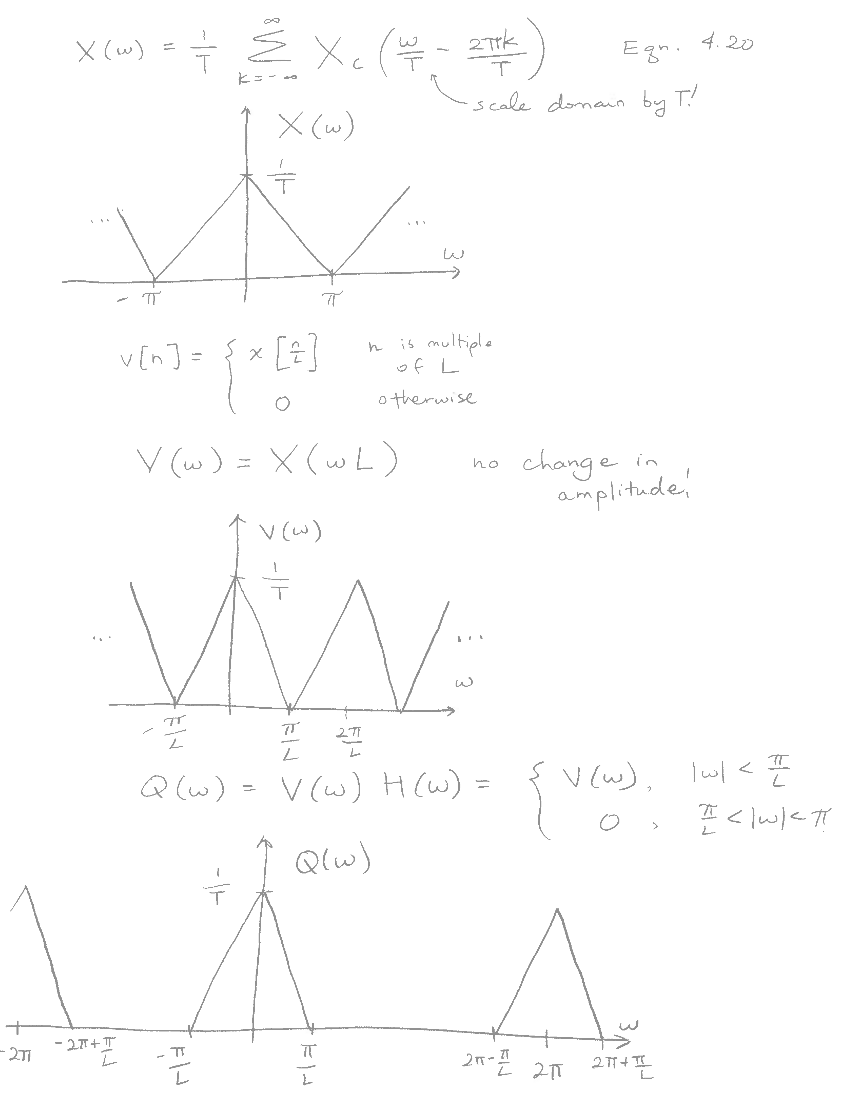 X(ω) = 1/T ∞ Σ k=-∞ X_c (ω/T - 2πk/T) Eqn. 4.20
scale domain by T!
X(ω)
1/T
... ...
ω
-π π
v[n] = { x[n/L] n is multiple of L
0 otherwise
V(ω) = X(ωL) no change in
amplitude!
V(ω)
1/T
... ...
ω
-π/L π/L 2π/L
Q(ω) = V(ω) H(ω) = { V(ω), |ω| < π/L
0, π/L < |ω| < π
Q(ω)
1/T
ω
-2π -2π+π/L -π/L π/L 2π-π/L 2π 2π+π/L